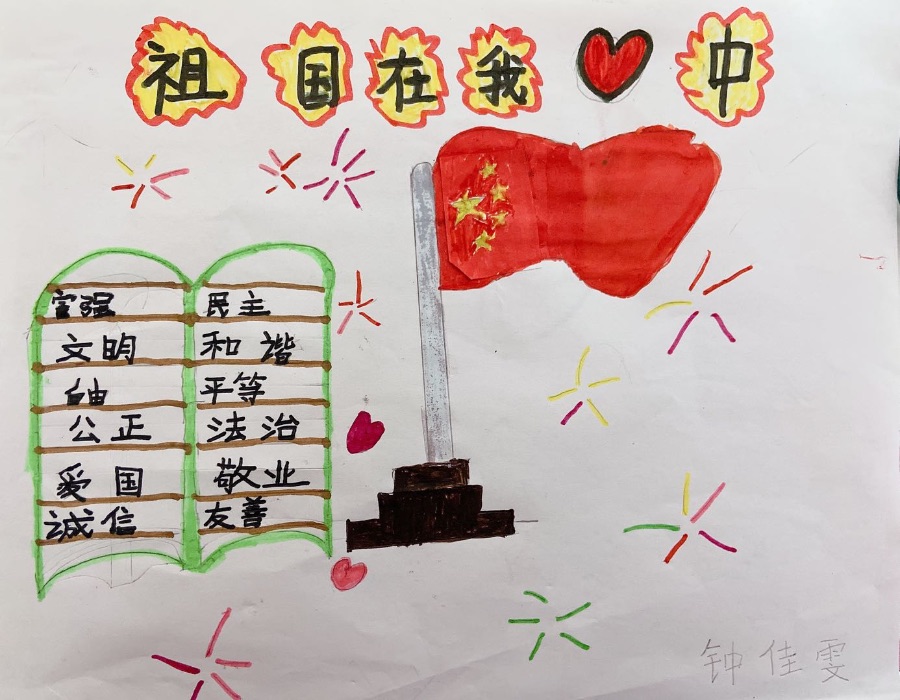 祖国在我中
富强 民主
文明 和谐
自由 平等
公正 法治
爱国 敬业
诚信 友善
钟佳雯